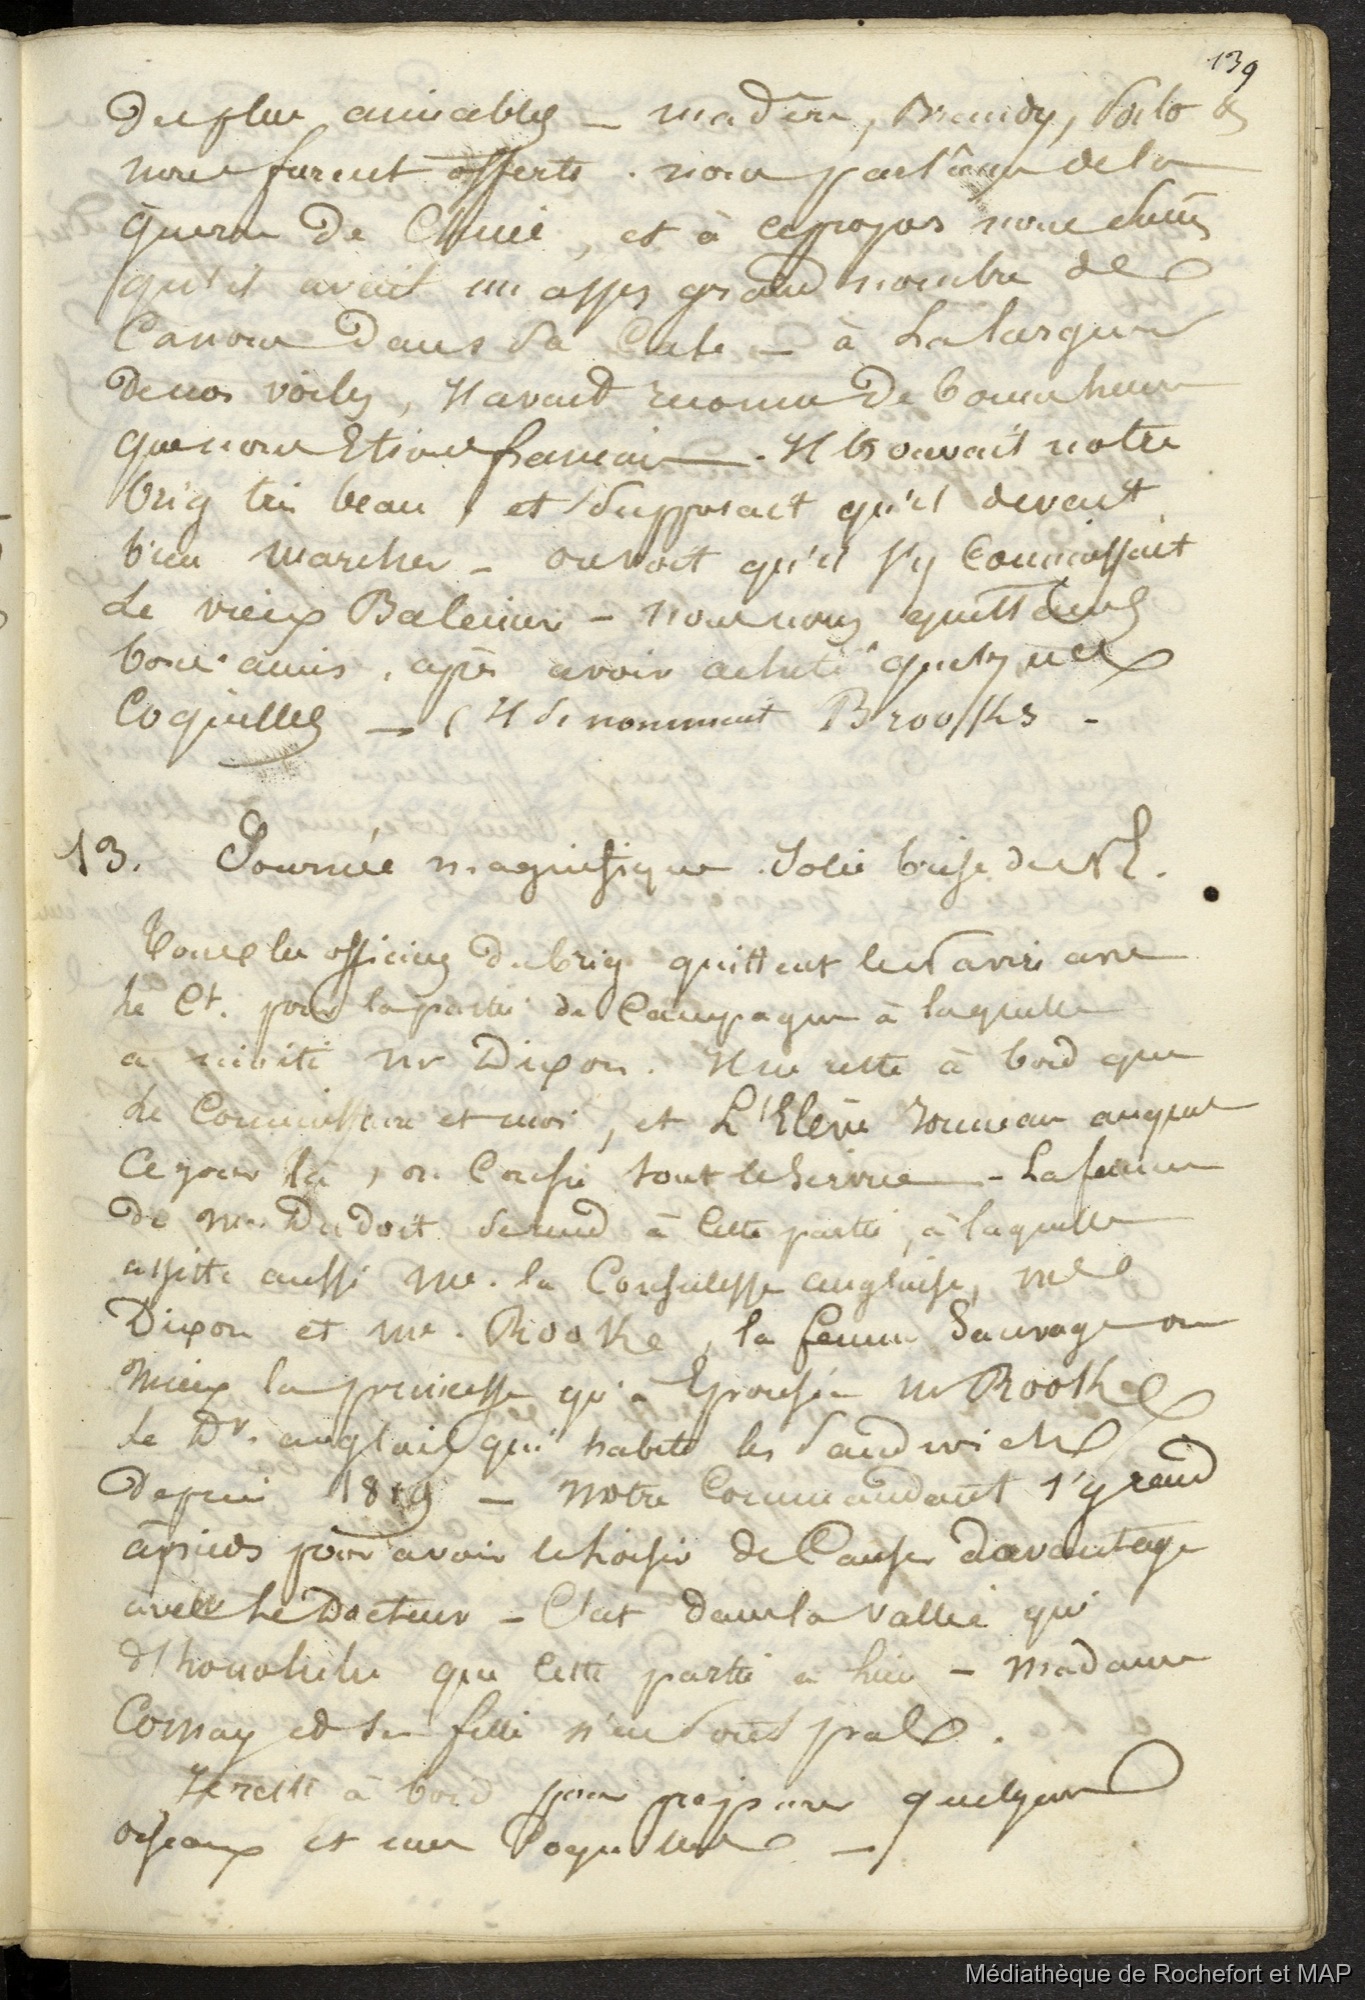 139
Des plus aimables – madère, Brandy, Porto &
nous furent offerts. nous parlâmes de la
guerre de Chine, et à ce propos nous dîmes
qu'il avait un assez grand nombre de
Canons dans sa Cale – à La largeur
de nos voiles, Il avait reconnu de bonne heure
que nous Etions francais. Il trouvait notre
brig très beau, et supposait qu'il devait
bien marcher – on voit qu'il s'y Connaissait
Le vieux Baleinier – nous nous quittâmes
bons amis, après avoir acheté quelques
Coquilles – (Il se nommait Brooks –
13. Journée magnifique. Jolie brise de NE.
Tous les officiers du brig quittent le Navire avec
le Ct. pour la partie de Campagne à laquelle
a invité Mr Dixon. Il ne reste à bord que
Le Commissaire et moi, et L'Elève auquel
Ce jour là, on Confie tout le Service – La femme
de Mr. Dudoit se rend à Cette partie, à laquelle
assiste aussi Me. la Consulesse anglaise, Mde
Dixon et Me. Rooke, la femme Sauvage ou
Mieux la princesse qu'a Epousée Mr Rooke
Le Dr. anglais qui habite les Sandwich
depuis 1819 – Notre Commandant s'y rend
à pieds pour avoir le loisir de Causer davantage
avec le Docteur – C'est dans la vallée qui
d'honolulu que Cette partie a lieu – Madame
Cornay et sa fille n'en sont pas.
Je reste à bord pour préparer quelques
oiseaux et mes Coquilles –
Médiathèque de Rochefort et MAP